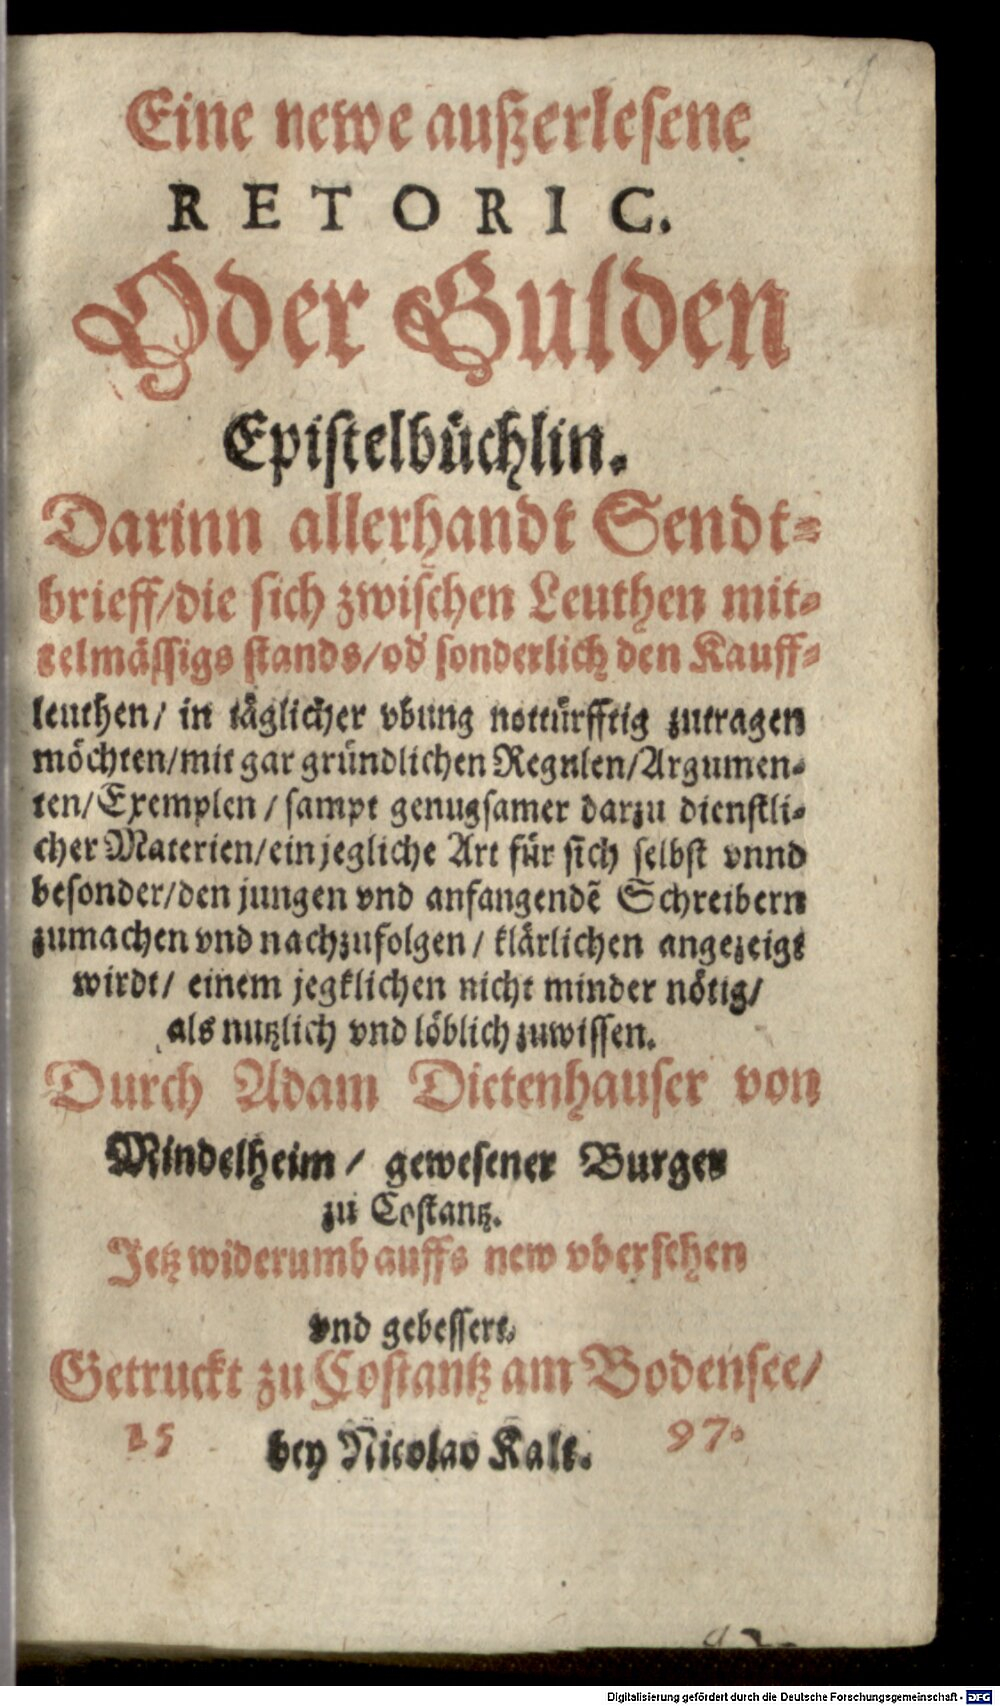 Eine newe außerlesene
RETORIC.
Oder Gulden
Epistelbüchlin.
Darinn allerhandt Sendt-
brieff/die sich zwischen Leuthen mit-
telmässigs stands/od sonderlich den Kauff-
leuthen/ in täglicher vbung nottürfftig zutragen
möchten/mit gar gründlichen Regulen/Argumen-
ten/Exemplen/ sampt genugsamer darzu dienstli-
cher Materien/ein jegliche Art für sich selbst vnnd
besonder/den jungen vnd anfangendẽ Schreibern
zumachen vnd nachzufolgen/ klärlichen angezeigt
wirdt/ einem jegklichen nicht minder nötig/
als nutzlich vnd löblich zuwissen.
Durch Adam Dietenhauser von
Mindelheim/ gewesener Burger
zu Costantz.
Jetz widerumb auffs new vbersehen
vnd gebessert.
Getruckt zu Costantz am Bodensee/
15 97.
bey Nicolao Kalt.
Digitalisierung gefördert durch die Deutsche Forschungsgemeinschaft - DFG